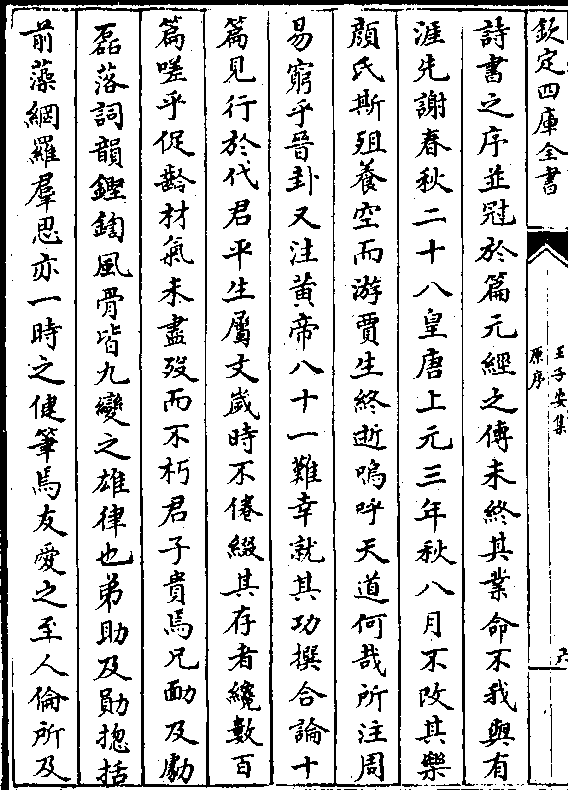 欽定四庫全書
王子安集
原序
六
詩書之序並冠於篇元經之傳未終其業命不我與有
涯先謝春秋二十八皇唐上元三年秋八月不改其樂
顏氏斯殂養空而游賈生終逝嗚呼天道何哉所注周
易窮乎晉卦又注黃帝八十一難幸就其功撰合論十
篇見行於代君平生屬文歲時不倦綴其存者纔數百
篇嗟乎促齡材氣未盡歿而不朽君子貴焉兄勔及勮
磊落詞韻鏗鍧風骨皆九變之雄律也弟助及勛揔括
前藻網羅羣思亦一時之健筆焉友愛之至人倫所及